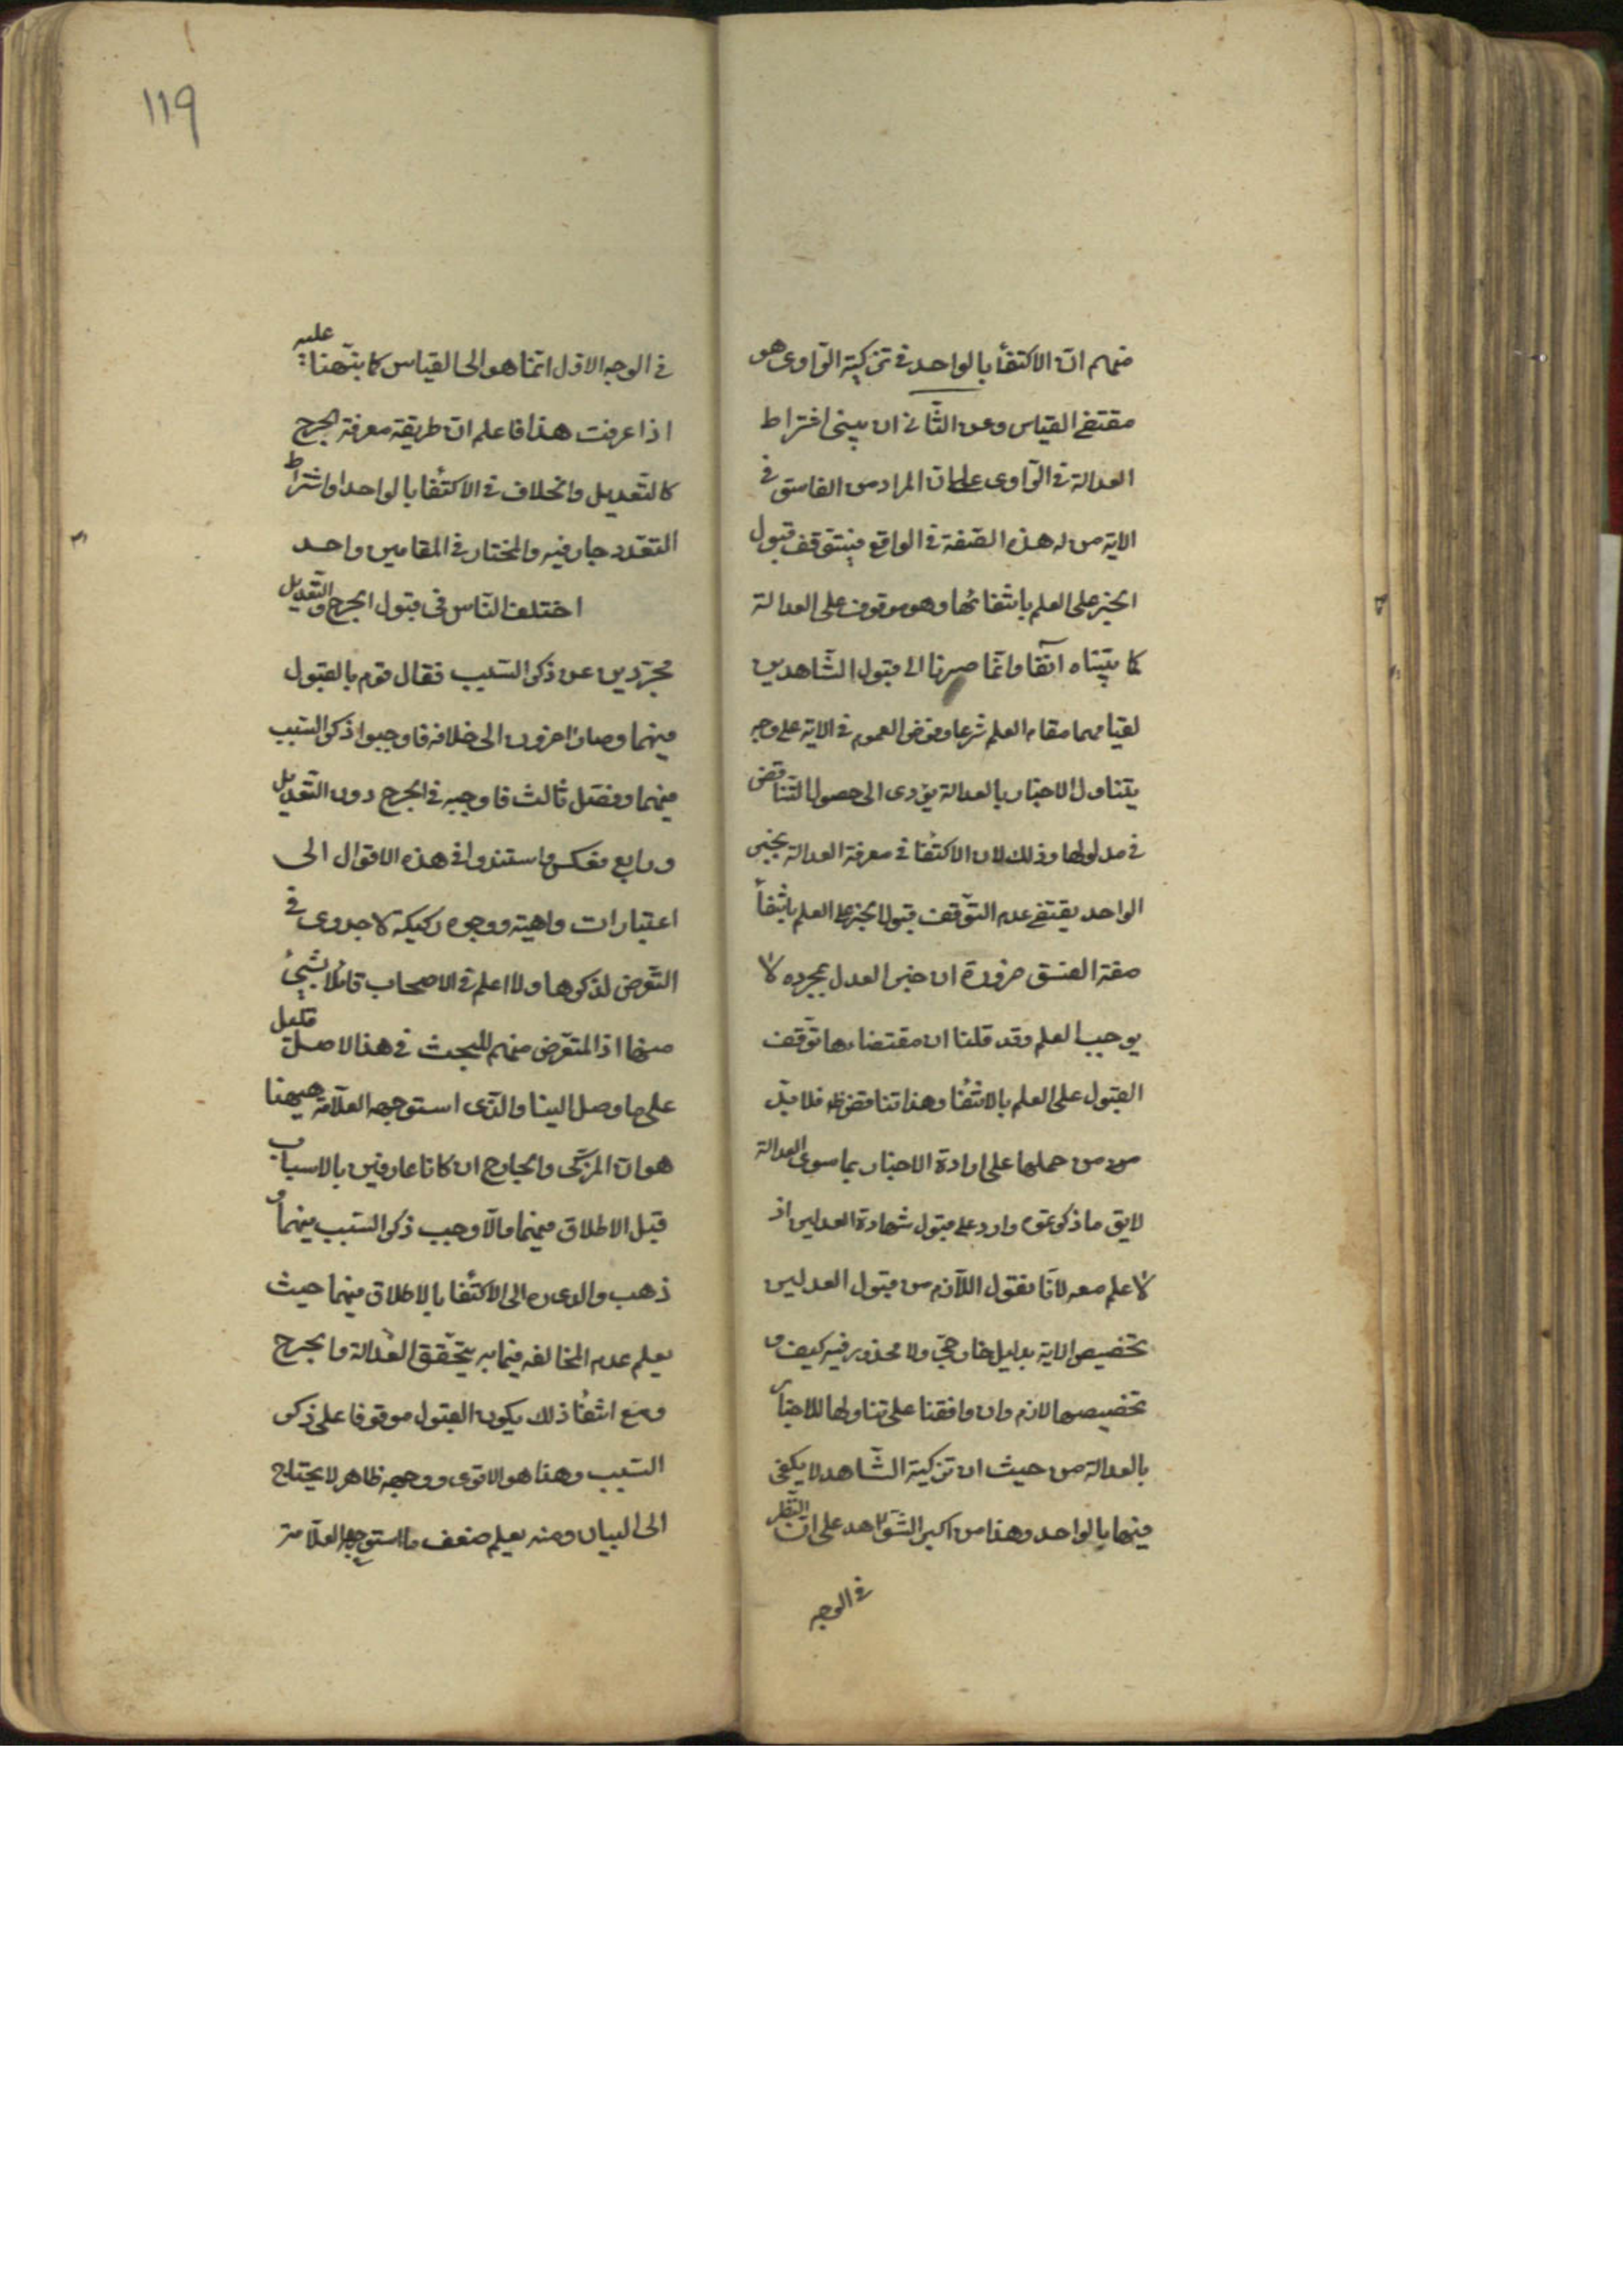 منهم ان الاكتفاء بالواحد في تزكية الراوى هو
مقتضى القياس وعن الثانى ان مبنى اشتراط
العدالة في الراوى على ان المراد من الفاسق في
الاية من له هذه الصفة في الواقع فيتوقف قبول
الخبر على العلم بانتفائها وهو موقوف على العدالة
كما بيناه آنفا وانما صرنا الى قبول الشاهدين
لقيامهما مقام العلم شرعا وفرض العموم في الاية على وجه
يتناول الاخبار بالعدالة يؤدى الى حصول التناقض
في مدلولها وذلك لان الاكتفا في معرفة العدالة بخبر
الواحد يقتضى عدم التوقف قبول الخبر على العلم بانتفاء
صفة الفسق ضرورة ان خبر العدل بمجرده لا
يوجب العلم وقد قلنا ان مقتضاها توقف
القبول على العلم بالانتفا وهذا تناقض ظ فلا بد
من من حملها على ارادة الاخبار بما سوى العدالة
لايق ما ذكرتموه وارد على قبول شهادة العدلين اذ
لا علم معه لانا نقول اللازم من قبول العدلين
تخصيص الاية بدليل خارجى ولا محذور فيه كيف و
تخصيصها لازم وان وافقنا على تناولها للاخبار
بالعدالة من حيث ان تزكية الشاهد لا يكفى
فيها بالواحد وهذا من اكبر الشواهد على ان النظر
في الوجه
119
في الوجه الاول انما هو الى القياس كما نبهنا عليه
اذا عرفت هذا فاعلم ان طريقة معرفة الجرح
كالتعديل والخلاف في الاكتفا بالواحد او اشتراط
التعدد جار فيه والمختار في المقامين واحد
اختلف الناس في قبول الجرح والتعديل
مجردين عن ذكر السبب فقال قوم بالقبول
فيهما وصار اخرون الى خلافه فاوجبوا ذكر السبب
فيهما وفصل ثالث فاوجبه في الجرح دون التعديل
ورابع فعكس واستندوا في هذه الاقوال الى
اعتبارات واهية ووجوه ركيكة لا جدوى في
التعرض لذكرها ولا اعلم في الاصحاب قائلا بشيء
منها اذ المتعرض منهم للبحث في هذا الاصل قليل
على ما وصل الينا والذى استوجهه العلامة هيهنا
هو ان المزكى والجارح ان كانا عارفين بالاسباب
قبل الاطلاق فيهما والا وجب ذكر السبب فيهما و
ذهب والدى ره الى الاكتفا بالاطلاق فيهما حيث
يعلم عدم المخالفة فيما به يتحقق العدالة والجرح
ومع انتفا ذلك يكون القبول موقوفا على ذكر
السبب وهذا هو الاقوى ووجهه ظاهر لا يحتاج
الى البيان ومنه يعلم ضعف ما استوجهه العلامة